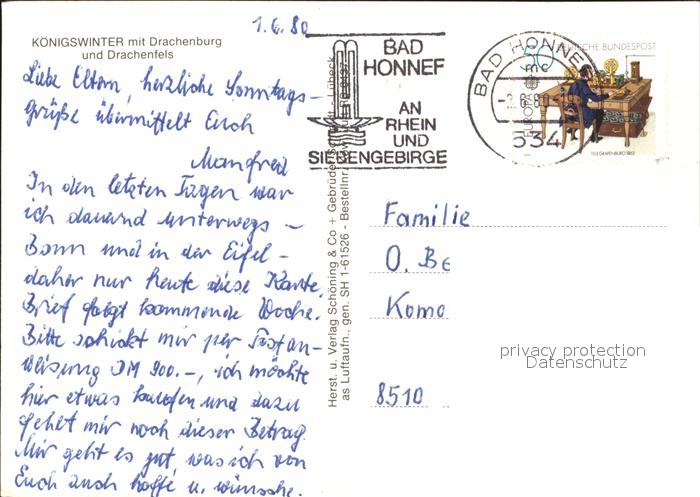 1.6.80
KÖNIGSWINTER mit Drachenburg
und Drachenfels
Liebe Eltern, herzliche Sonntags-
grüße übermittelt Euch
Manfred
In den letzten Tagen war
ich dauernd unterwegs -
Bonn und in der Eifel -
daher nur heute diese Karte.
Brief folgt kommende Woche.
Bitte schickt mir per Postan-
weisung DM 900.-, ich möchte
hier etwas kaufen und dazu
fehlt mir noch dieser Betrag.
Mir geht es gut, was ich von
Euch auch hoffe u. wünsche.
Herst. u. Verlag Schöning & Co + Gebrüder Schmidt - Lübeck
as Luftaufn., gen. SH 1-61526 - Bestellnr.
BAD
HONNEF
AN
RHEIN
UND
SIEBENGEBIRGE
BAD HONNEF
534
DEUTSCHE BUNDESPOST
EUROPA
Familie
O. Be
Komo
8510
privacy protection
Datenschutz